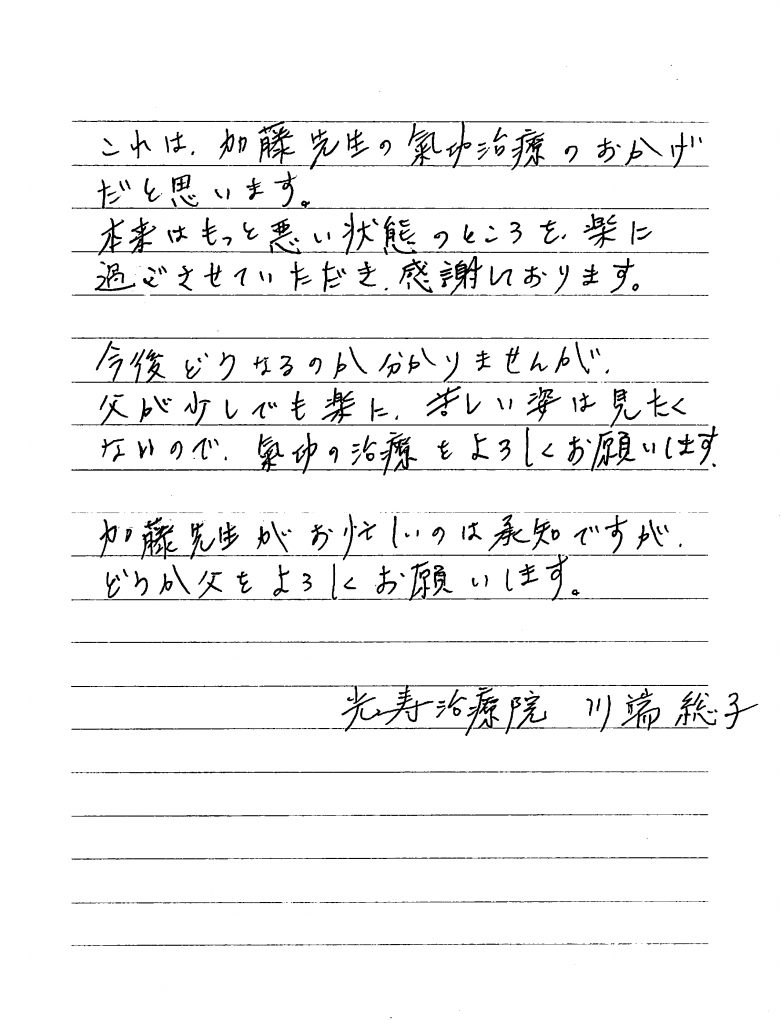 これは、加藤先生の氣功治療のおかげ
だと思います。
本来はもっと悪い状態のところを、楽に
過ごさせていただき、感謝しております。
今後どうなるのか分かりませんが、
父が少しでも楽に、苦しい姿は見たく
ないので、氣功の治療をよろしくお願いします。
加藤先生がお忙しいのは承知ですが、
どうか父をよろしくお願いします。
光寿治療院 川端総子